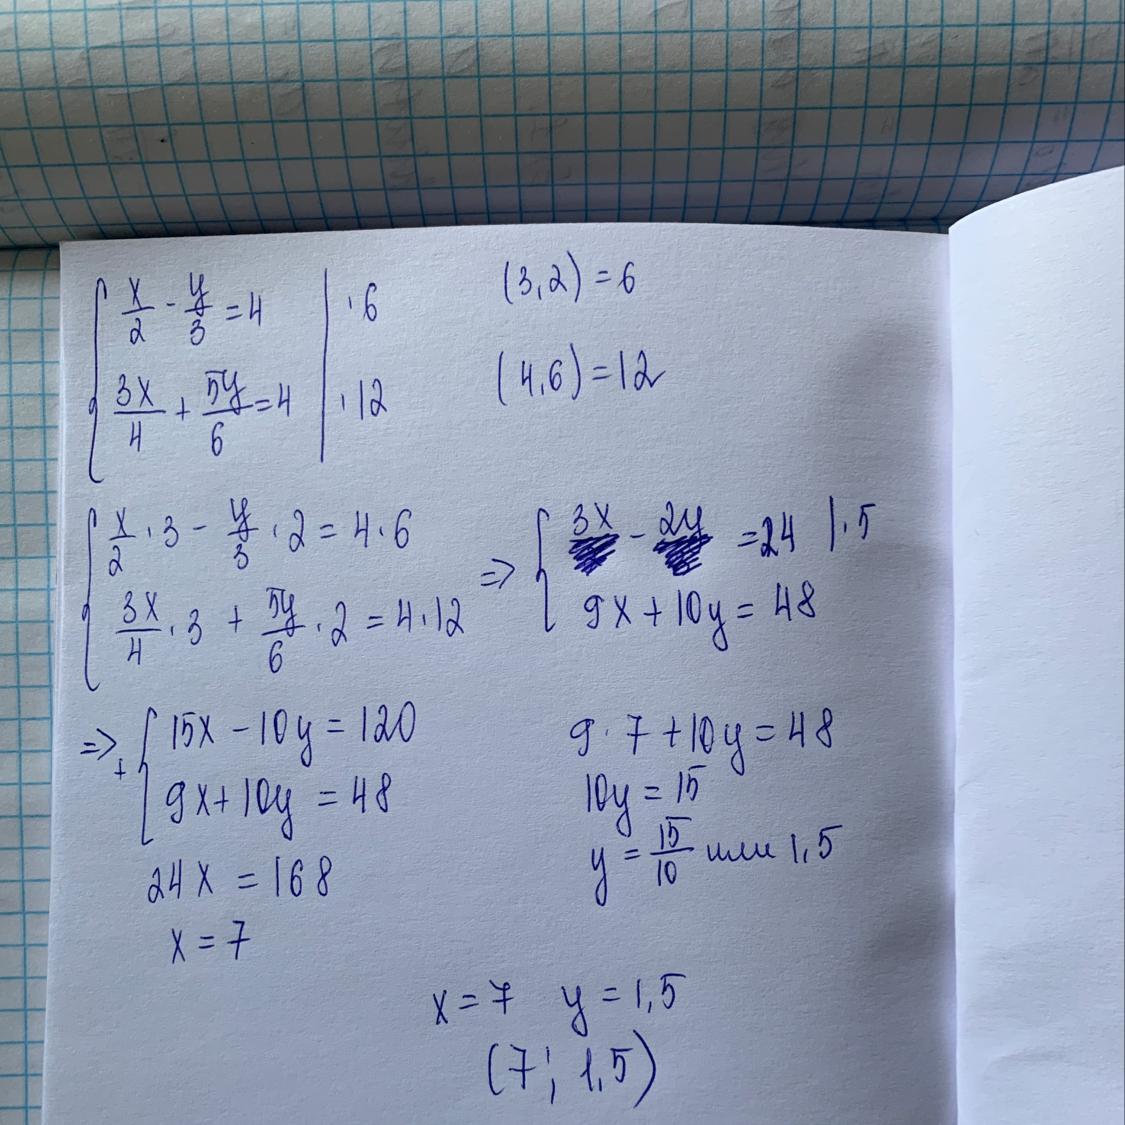 x/2 - y/3 = 4 | · 6
(3,2) = 6
3x/4 + 5y/6 = 4 | · 12
(4,6) = 12
x/2 · 3 - y/3 · 2 = 4 · 6
3x/4 · 3 + 5y/6 · 2 = 4 · 12
=> 3x - 2y = 24 | · 5
9x + 10y = 48
=> + 15x - 10y = 120
9x + 10y = 48
24x = 168
x = 7
9 · 7 + 10y = 48
10y = 15
y = 15/10 или 1,5
x = 7 y = 1,5
(7; 1,5)